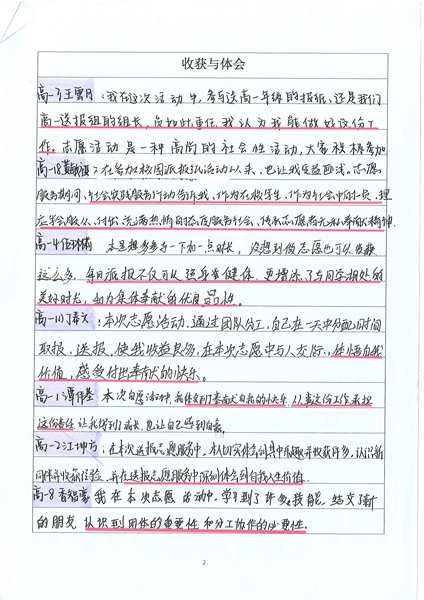 收获与体会
高一3王雪月：我在这次活动中，参与送高一年级的报纸、还是我们
高一送报组的组长，负如此重任，我认为我能做好这份工
作。志愿活动是一种高尚的社会性活动，大家积极参加
高一18 ：在参加校园派报纸活动以来，也让我受益匪浅。志愿
服务期间，社会实践服务行动告诉我，作为在校学生，作为社会中的一员，理
应学会服从、付出，充满热情的态度服务社会，传承志愿者无私奉献精神。
高一4 本是想多多少少一下加一点时长，没想到做志愿也可以收获
这么多，每日派报不仅可以强身健体，更增添了与同学相处的
美好时光，和为集体奉献的优良品性。
高一10丁莉文：本次志愿活动，通过团队分工，自己在一天中分配好时间
取报、送报，使我收益良多，在本次志愿中与人交际，体悟自我
价值，感受付出奉献的快乐。
高一1谭伟基 本次自愿活动中，我体会到了奉献自我的快乐，从事这份工作承担
这份责任让我得到了成长，也让自己感到自豪。
高一2江坤方：在本次送报志愿服务中，本人切实体会到其中乐趣并收获许多，认识新
同伴并收获经验，并在送报志愿服务中深刻体会到自我人生价值。
高一8 智 我在本次志愿活动中，学习到了许多技能，结交了新
的朋友，认识到团体的重要性和分工协作的必要性。
2